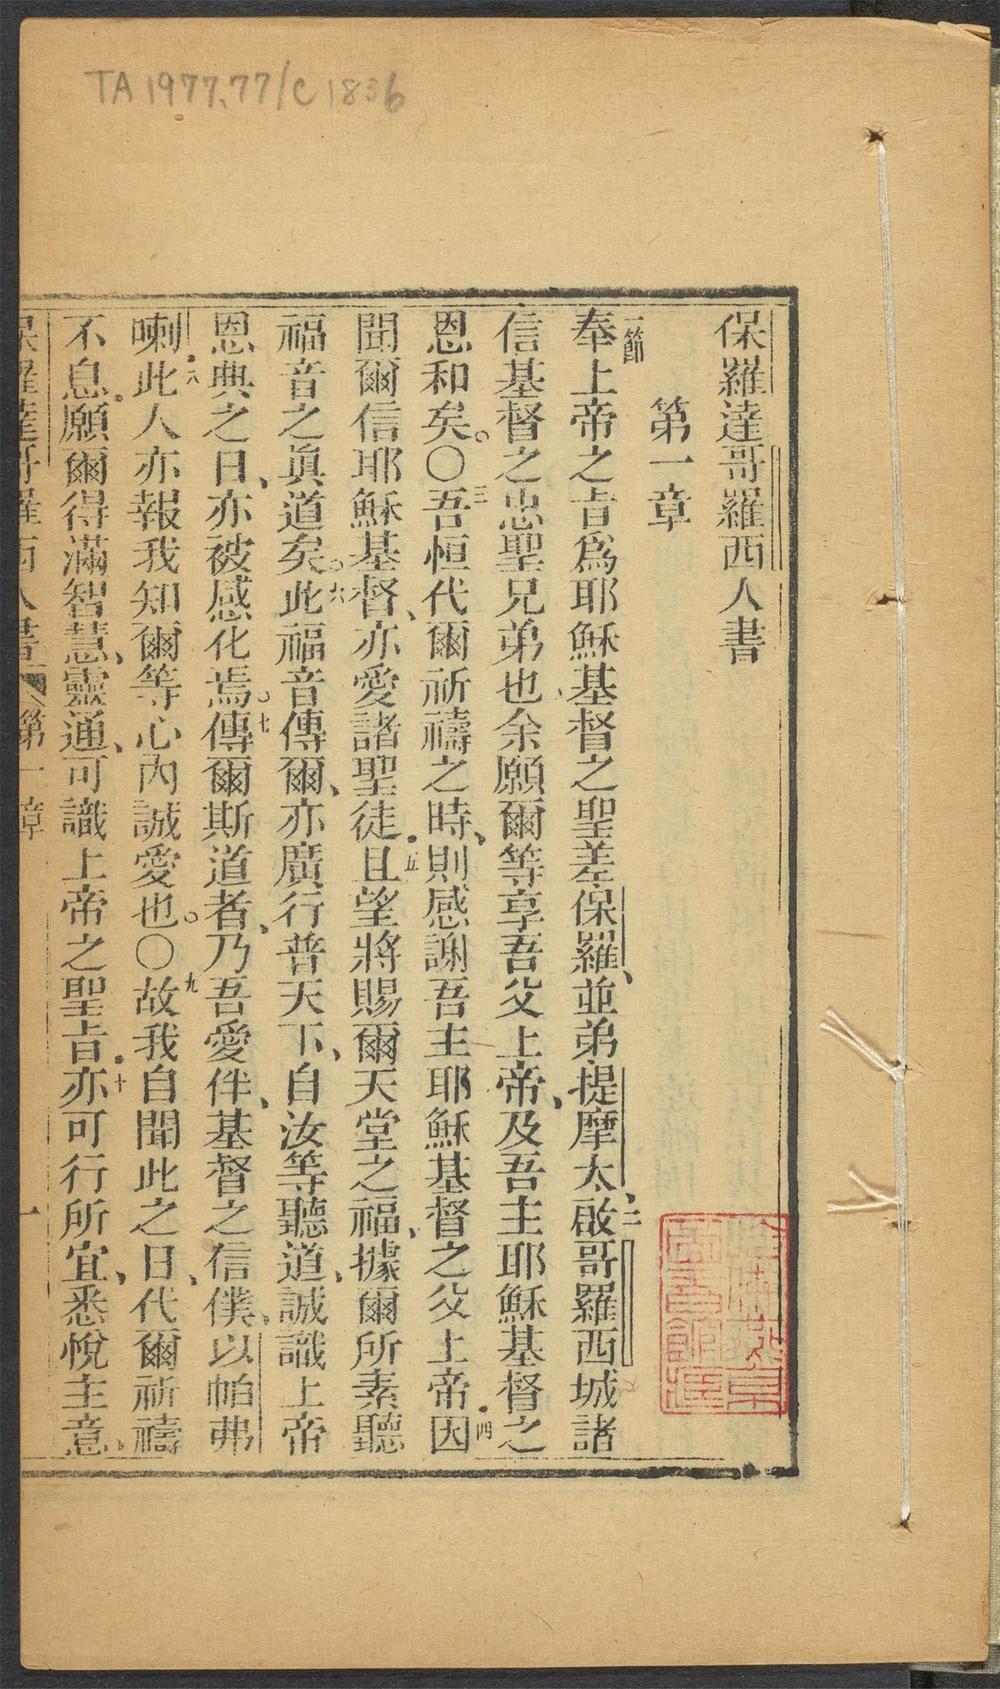 TA 1977.77/C1836
保羅達哥羅西人書
第一章
一節奉上帝之旨爲耶穌基督之聖差保羅、並弟提摩太、二啟哥羅西城諸
信基督之忠聖兄弟也、余願爾等享吾父上帝、及吾主耶穌基督之
恩和矣。〇三吾恒代爾祈禱之時、則感謝吾主耶穌基督之父上帝四因
聞爾信耶穌基督、亦愛諸聖徒、五且望將賜爾天堂之福、據爾所素聽
福音之眞道矣。六此福音傳爾、亦廣行普天下、自汝等聽道、誠識上帝
恩典之日、亦被感化焉。七傳爾斯道者、乃吾愛伴、基督之信僕、以帕弗
喇、八此人亦報我知爾等心內誠愛也。〇九故我自聞此之日、代爾祈禱
不息、願爾得滿智慧、靈通、可識上帝之聖旨、十亦可行所宜、悉悅主意、
保羅達哥羅西人書 第一章 一